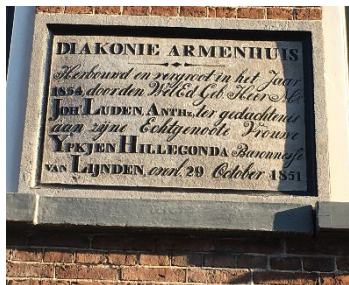 DIAKONIE ARMENHUIS
Herbouwd en vergroot in het Jaar
1854, door den WelEd. Geb. Heer Mr.
JOH. LUDEN, ANTHz. ter gedachtenis
aan zijne Echtgenoote Vrouwe
YPKJEN HILLEGONDA Baronnesse
VAN LIJNDEN, overl. 29 October 1851